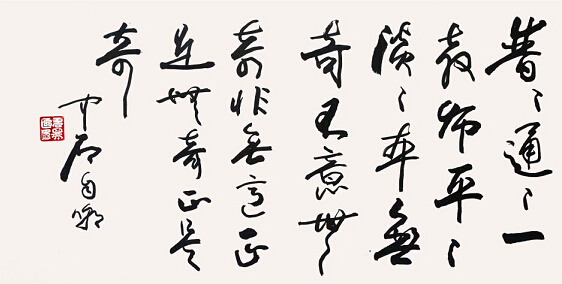 普〻通〻一
教师平〻
淡〻本無
奇有意無
奇非無意正
是無奇正是
奇
中石自嘲